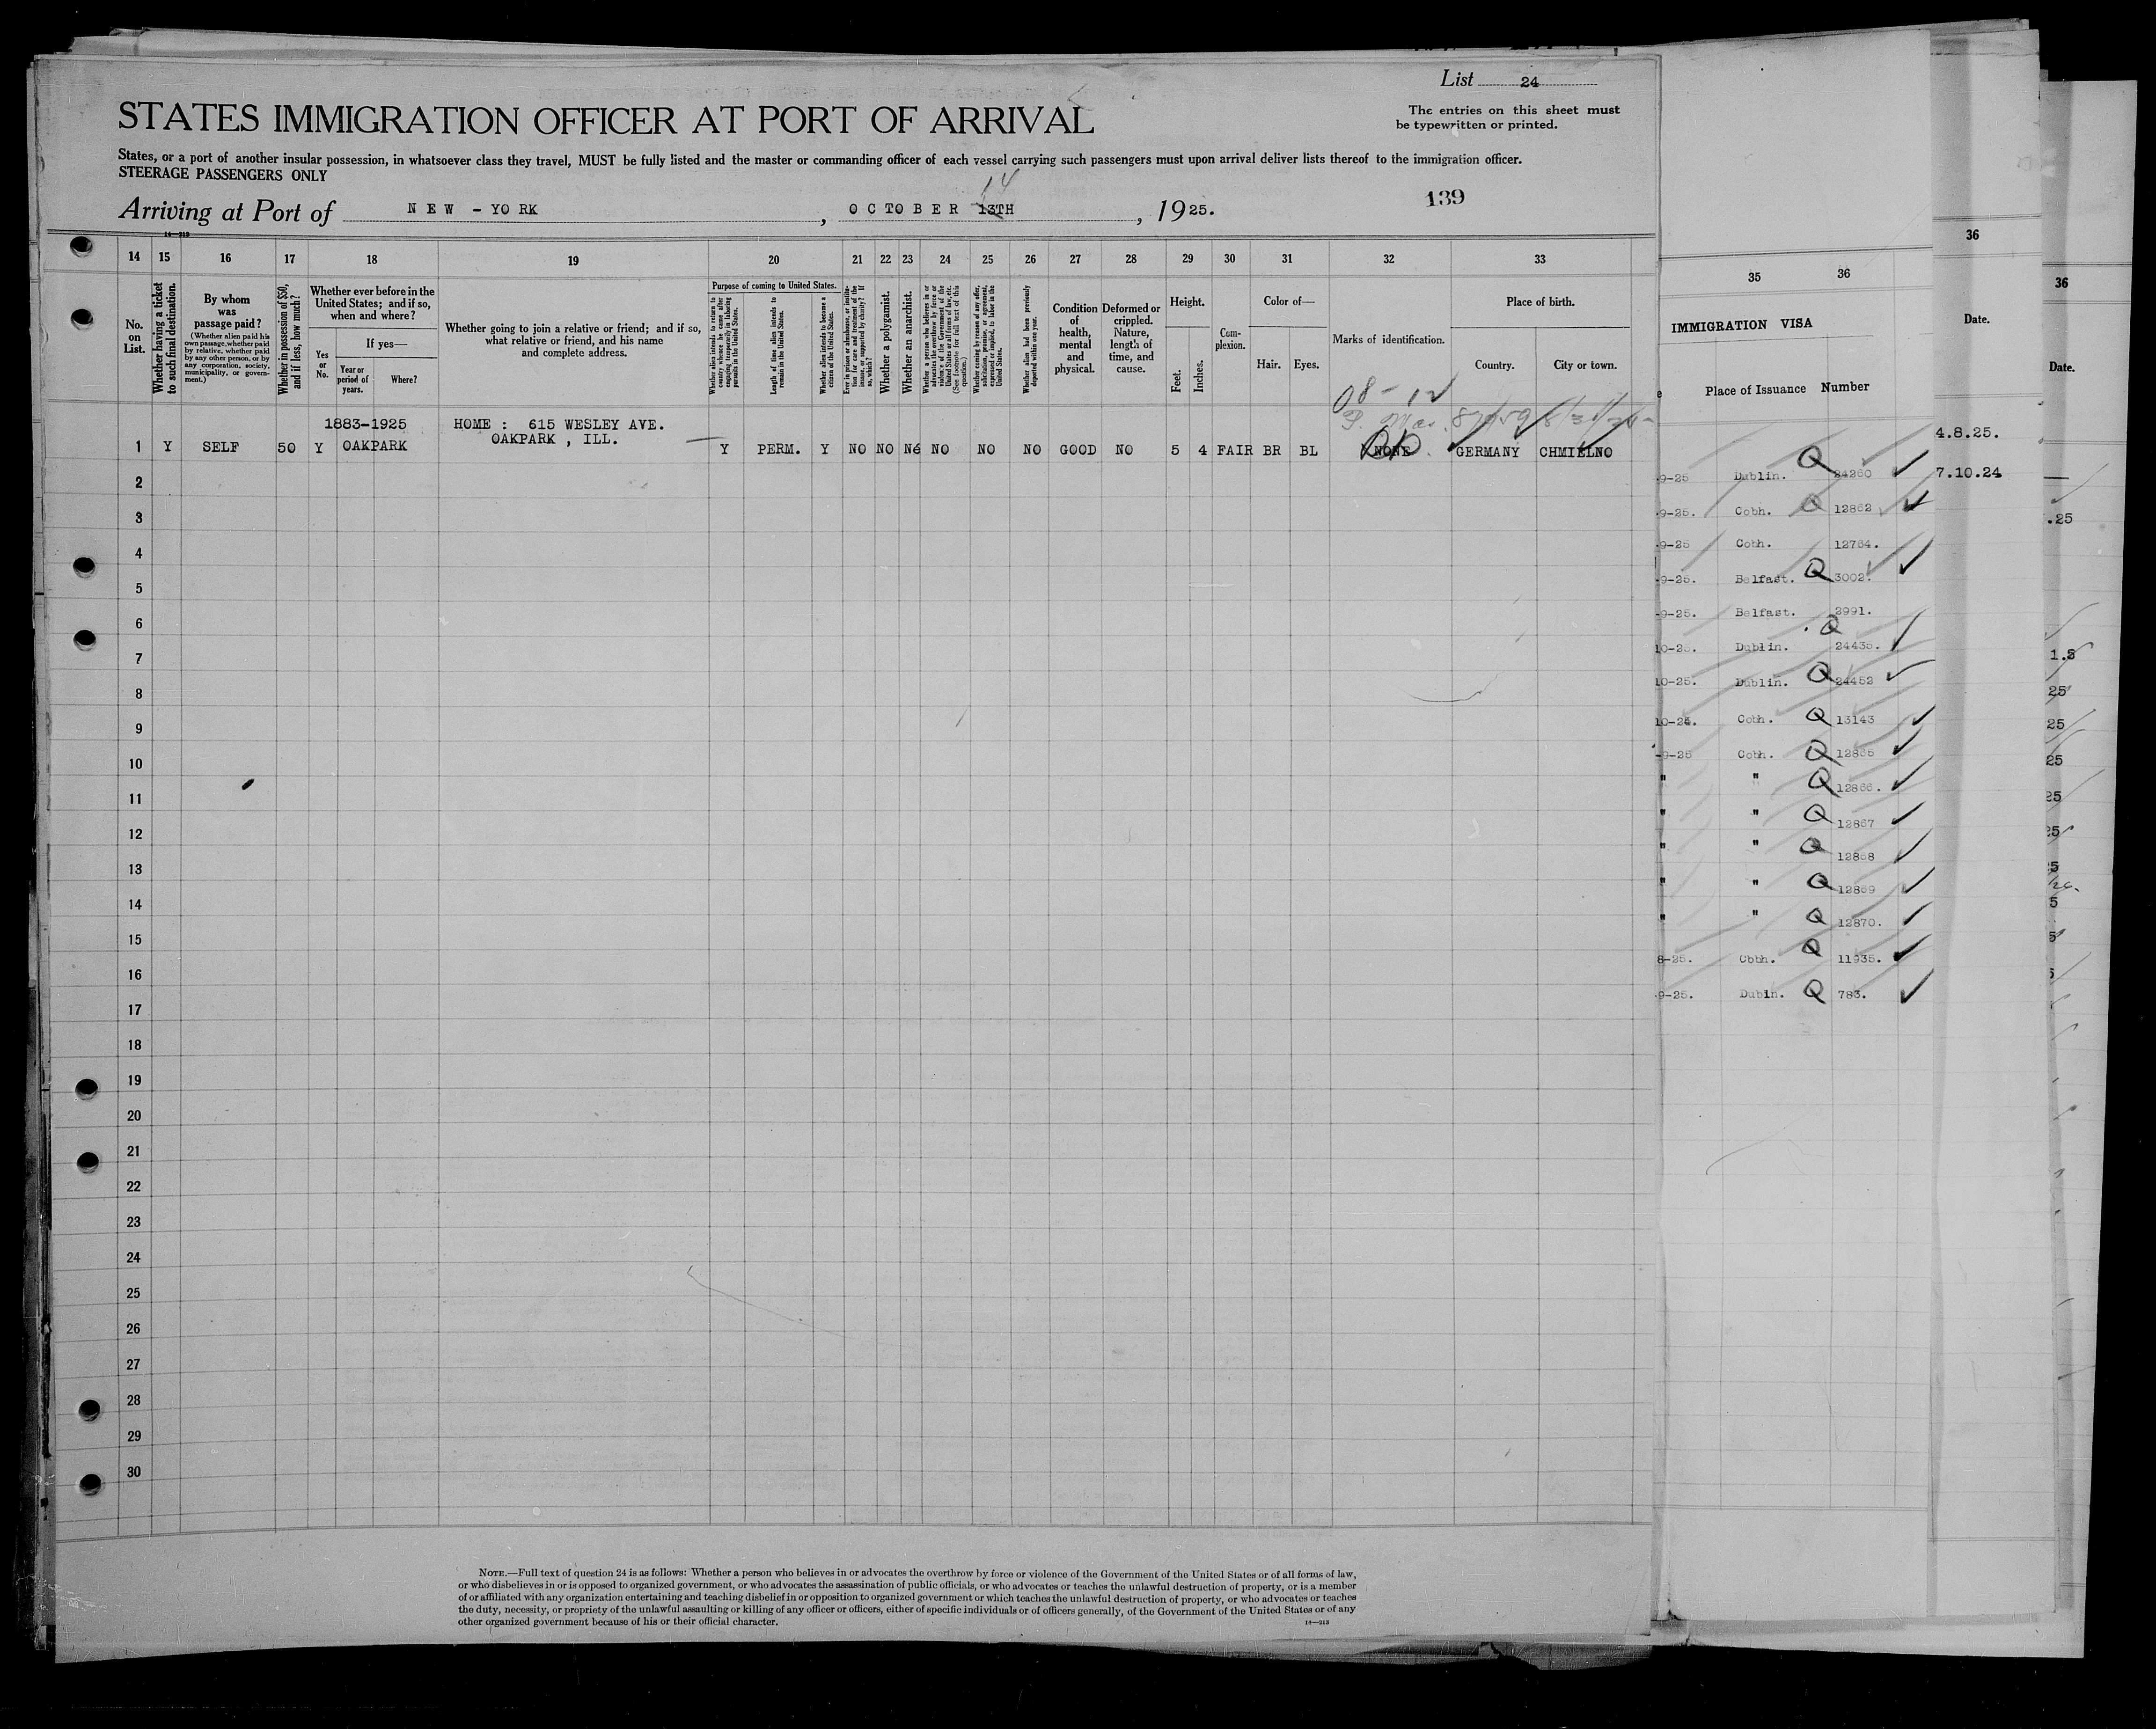 List 24
STATES IMMIGRATION OFFICER AT PORT OF ARRIVAL
The entries on this sheet must
be typewritten or printed.
States, or a port of another insular possession, in whatsoever class they travel, MUST be fully listed and the master or commanding officer of each vessel carrying such passengers must upon arrival deliver lists thereof to the immigration officer.
STEERAGE PASSENGERS ONLY
14
139
Arriving at Port of NEW - YORK , OCTOBER 13TH , 1925.
14—213
14 15 16 17 18 19 20 21 22 23 24 25 26 27 28 29 30 31 32 33
No. on List.
Whether having a ticket to such final destination.
By whom was passage paid?
(Whether alien paid his own passage, whether paid by relative, whether paid by any other person, or by any corporation, society, municipality, or government.)
Whether in possession of $50, and if less, how much?
Whether ever before in the United States; and if so, when and where?
Yes or No.
If yes—
Year or period of years.
Where?
Whether going to join a relative or friend; and if so, what relative or friend, and his name and complete address.
Purpose of coming to United States.
Whether alien intends to return to country whence he came after engaging temporarily in laboring pursuits in the United States.
Length of time alien intends to remain in the United States.
Whether alien intends to become a citizen of the United States.
Ever in prison or almshouse, or institution for care and treatment of the insane, or supported by charity? If so, which?
Whether a polygamist.
Whether an anarchist.
Whether a person who believes in or advocates the overthrow by force or violence of the Government of the United States or all forms of law, etc. (See footnote for full text of this question.)
Whether coming by reason of any offer, solicitation, promise, or agreement, expressed or implied, to labor in the United States.
Whether alien had been previously deported within one year.
Condition of health, mental and physical.
Deformed or crippled. Nature, length of time, and cause.
Height.
Feet.
Inches.
Complexion.
Color of—
Hair.
Eyes.
Marks of identification.
Place of birth.
Country.
City or town.
08-12
1883-1925
HOME : 615 WESLEY AVE.
OAKPARK , ILL.
1 Y SELF 50 Y OAKPARK — Y PERM. Y NO NO NO NO NO NO GOOD NO 5 4 FAIR BR BL NONE GERMANY CHMIELNO
2
3
4
5
6
7
8
9
10
11
12
13
14
15
16
17
18
19
20
21
22
23
24
25
26
27
28
29
30
NOTE.—Full text of question 24 is as follows: Whether a person who believes in or advocates the overthrow by force or violence of the Government of the United States or of all forms of law,
or who disbelieves in or is opposed to organized government, or who advocates the assassination of public officials, or who advocates or teaches the unlawful destruction of property, or is a member
of or affiliated with any organization entertaining and teaching disbelief in or opposition to organized government or which teaches the unlawful destruction of property, or who advocates or teaches
the duty, necessity, or propriety of the unlawful assaulting or killing of any officer or officers, either of specific individuals or of officers generally, of the Government of the United States or of any
other organized government because of his or their official character.
14—213
35 36
IMMIGRATION VISA
e Place of Issuance Number
9-25 Dublin. Q 24260
-9-25. Cobh. Q 12862
-9-25 Cobh. 12764.
-9-25. Belfast. Q 3002.
-9-25. Belfast. 2991.
10-25. Dublin. Q 24435.
10-25. Dublin. Q 24452
10-24. Cobh. Q 13143
-9-25 Cobh. Q 12865
" " Q 12866.
" " Q 12867
" " Q 12868
" " Q 12869
" " Q 12870.
8-25. Cobh. Q 11935.
9-25. Dubin. Q 783.
36
Date.
4.8.25.
7.10.24
36
Date.
.25
25
25
25
25